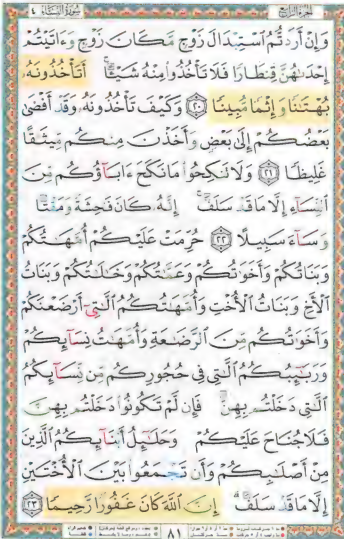 الجزء الرابع
سورة النساء ٤
وَإِنْ أَرَدتُّمُ ٱسْتِبْدَالَ زَوْجٍ مَّكَانَ زَوْجٍ وَءَاتَيْتُمْ
إِحْدَىٰهُنَّ قِنطَارًا فَلَا تَأْخُذُوا۟ مِنْهُ شَيْـًٔا ۚ أَتَأْخُذُونَهُۥ
بُهْتَـٰنًا وَإِثْمًا مُّبِينًا ٢٠ وَكَيْفَ تَأْخُذُونَهُۥ وَقَدْ أَفْضَىٰ
بَعْضُكُمْ إِلَىٰ بَعْضٍ وَأَخَذْنَ مِنكُم مِّيثَـٰقًا
غَلِيظًا ٢١ وَلَا تَنكِحُوا۟ مَا نَكَحَ ءَابَآؤُكُم مِّنَ
ٱلنِّسَآءِ إِلَّا مَا قَدْ سَلَفَ ۚ إِنَّهُۥ كَانَ فَـٰحِشَةً وَمَقْتًا
وَسَآءَ سَبِيلًا ٢٢ حُرِّمَتْ عَلَيْكُمْ أُمَّهَـٰتُكُمْ
وَبَنَاتُكُمْ وَأَخَوَٰتُكُمْ وَعَمَّـٰتُكُمْ وَخَـٰلَـٰتُكُمْ وَبَنَاتُ
ٱلْأَخِ وَبَنَاتُ ٱلْأُخْتِ وَأُمَّهَـٰتُكُمُ ٱلَّـٰتِىٓ أَرْضَعْنَكُمْ
وَأَخَوَٰتُكُم مِّنَ ٱلرَّضَـٰعَةِ وَأُمَّهَـٰتُ نِسَآئِكُمْ
وَرَبَـٰٓئِبُكُمُ ٱلَّـٰتِى فِى حُجُورِكُم مِّن نِّسَآئِكُمُ
ٱلَّـٰتِى دَخَلْتُم بِهِنَّ فَإِن لَّمْ تَكُونُوا۟ دَخَلْتُم بِهِنَّ
فَلَا جُنَاحَ عَلَيْكُمْ وَحَلَـٰٓئِلُ أَبْنَآئِكُمُ ٱلَّذِينَ
مِنْ أَصْلَـٰبِكُمْ وَأَن تَجْمَعُوا۟ بَيْنَ ٱلْأُخْتَيْنِ
إِلَّا مَا قَدْ سَلَفَ ۗ إِنَّ ٱللَّهَ كَانَ غَفُورًا رَّحِيمًا ٢٣
٨١